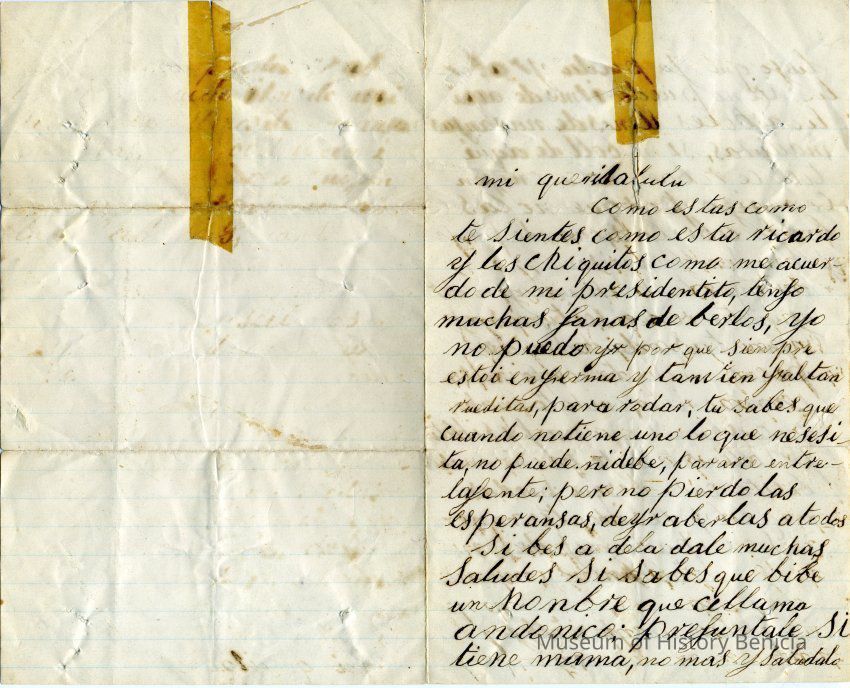 mi querida lulu
Como estas como
te sientes como esta ricardo
y los chiquitos como me acuer-
do de mi presidentito, tengo
muchas ganas de berlos, yo
no puedo yr por que sienpre
estoi enferma y tanvien faltan
rueditas, para rodar, tu sabes que
cuando no tiene uno lo que nesesi-
ta, no puede ni debe, pararce entre-
lagente; pero no pierdo las
esperansas, deyr aberlas a todos
si bes a dela dale muchas
saludes si sabes que bibe
un honbre que cellama
andonico: preguntale si
tiene mama, no mas y saludalo
Museum of History Benicia